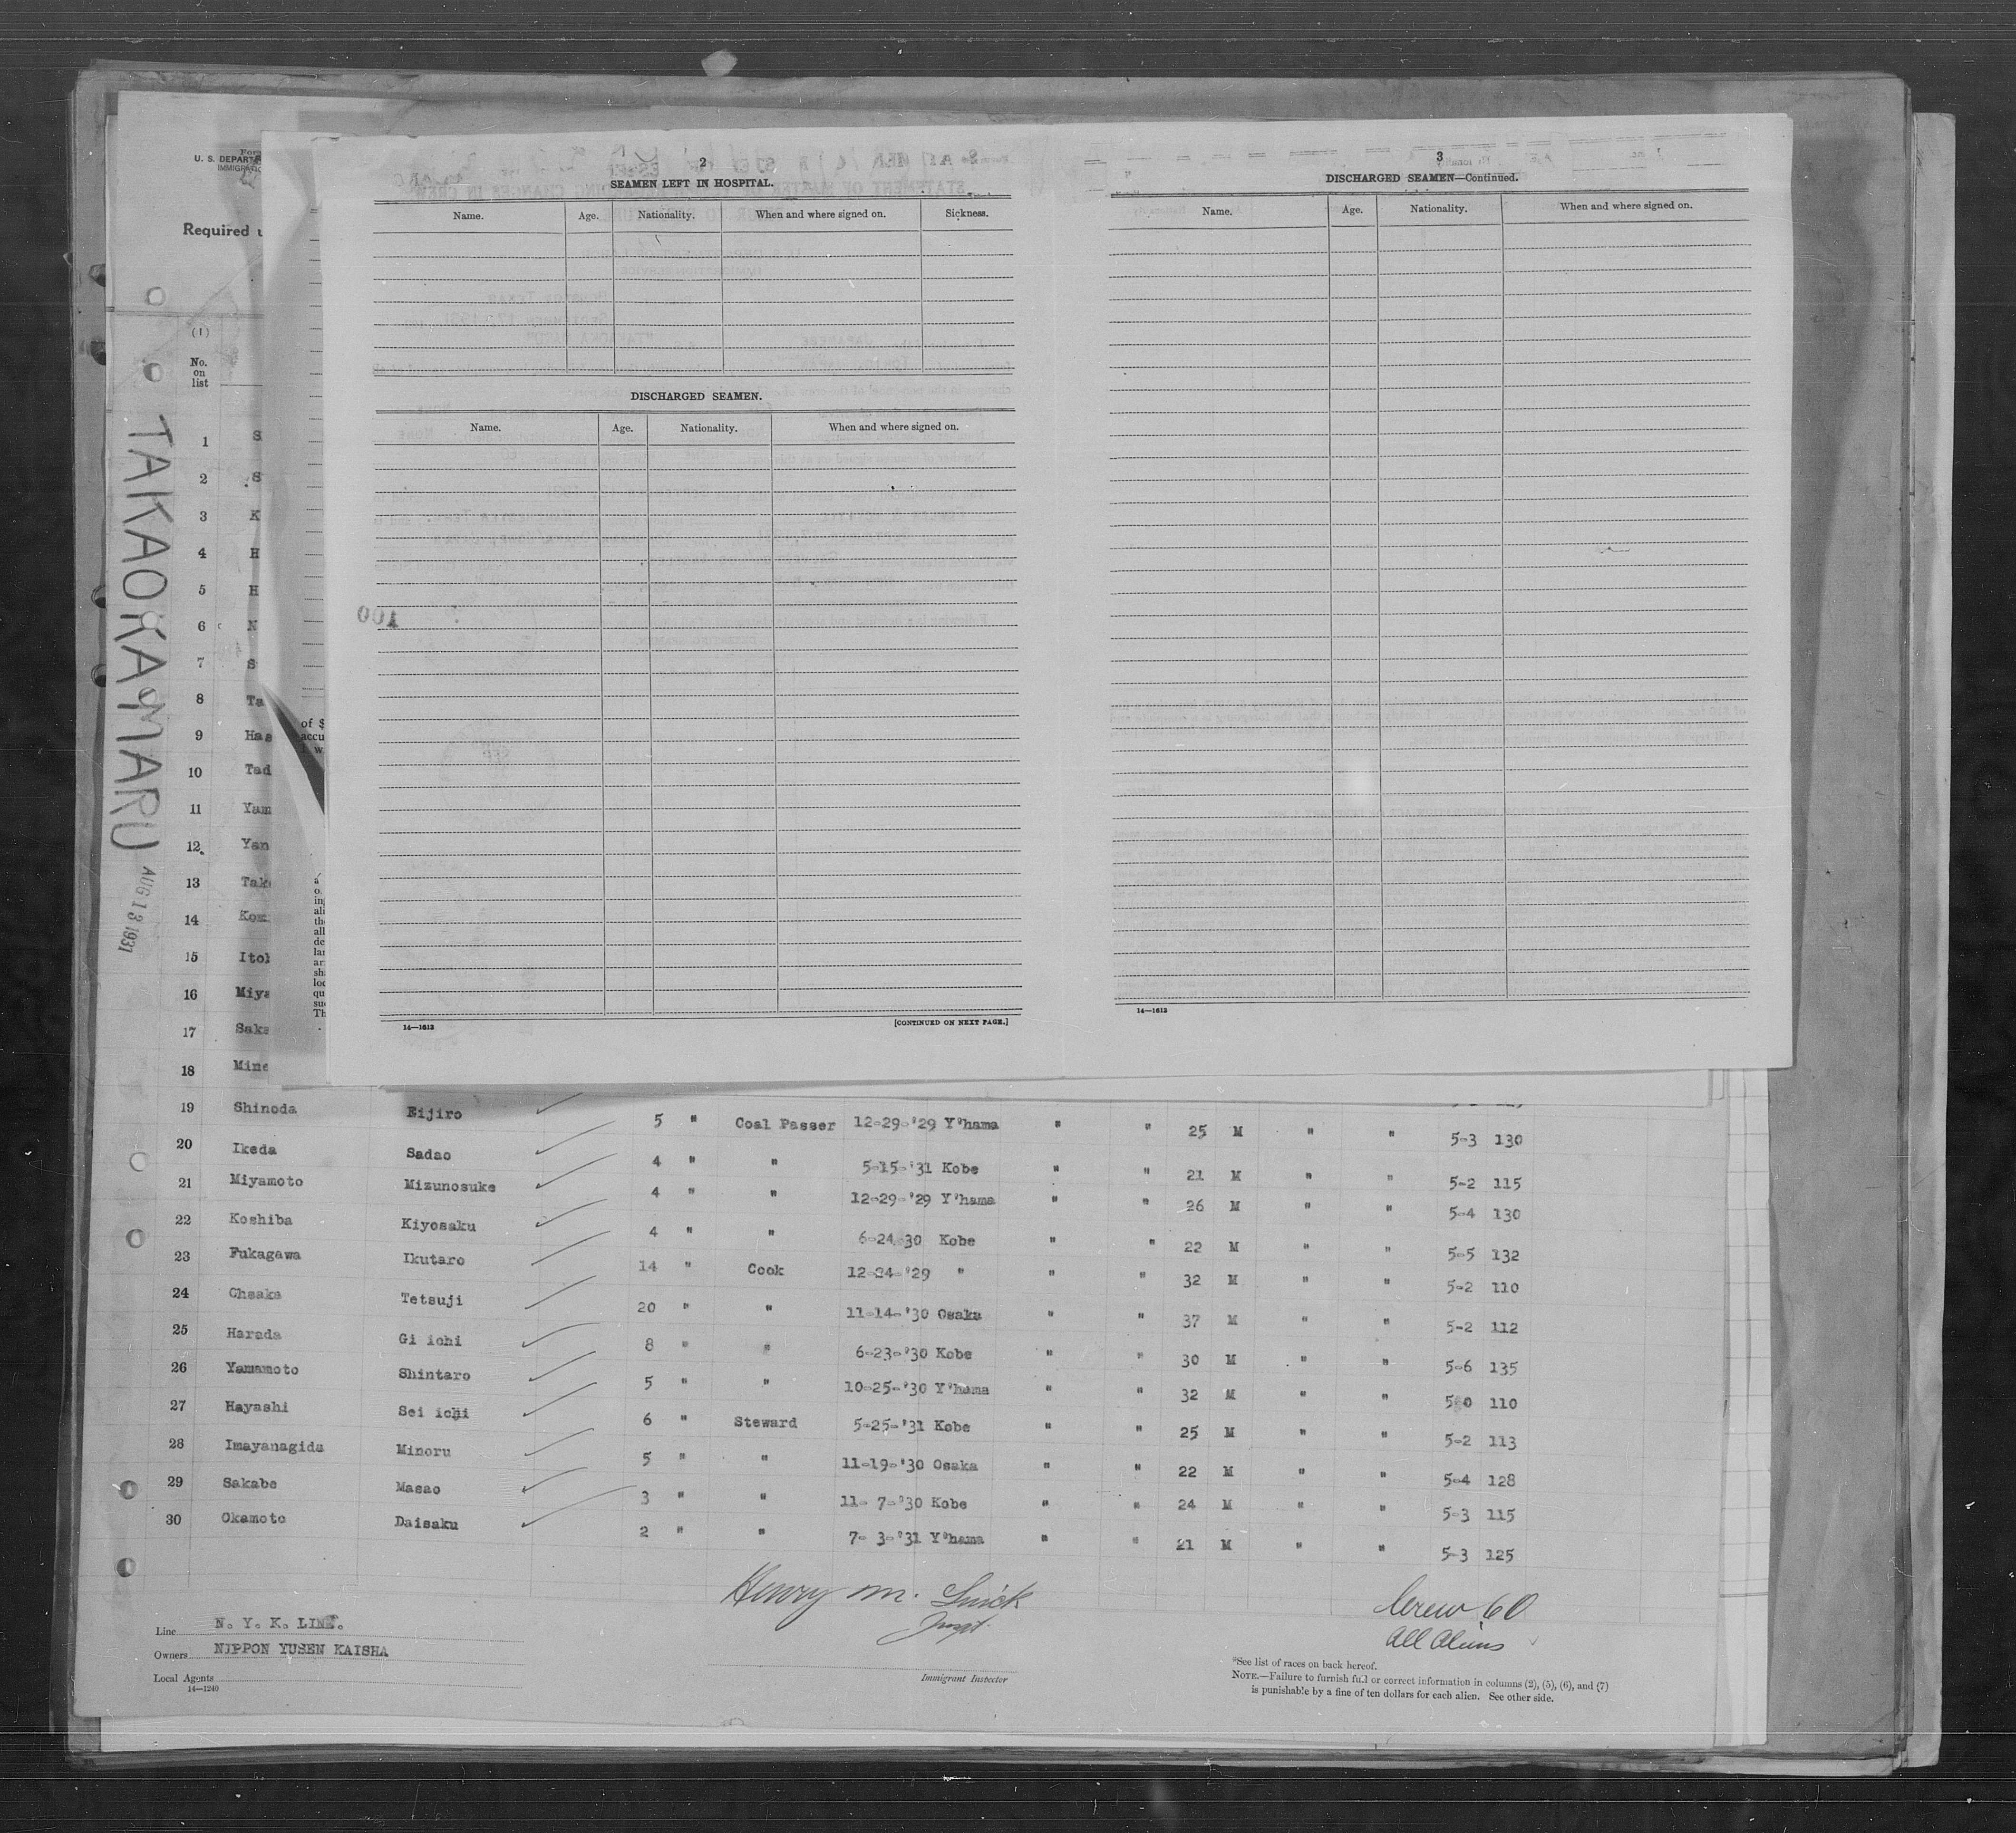 U. S. DEPART
IMMIGRA
Required u
(1)
No.
on
list
TAKAOKA MARU
AUG 13 1931
1 S
2 S
3 K
4 H
5 H
6 N
7 S
8 Ta
9 Has
10 Tad
11 Yam
12 Yan
13 Tak
14 Kom
15 Ito
16 Miya
17 Saka
18 Mine
of $
accu
I w
2
SEAMEN LEFT IN HOSPITAL.
Name. Age. Nationality. When and where signed on. Sickness.
DISCHARGED SEAMEN.
Name. Age. Nationality. When and where signed on.
100
14—1612 [CONTINUED ON NEXT PAGE.]
3
DISCHARGED SEAMEN—Continued.
Name. Age. Nationality. When and where signed on.
14—1612
19 Shinoda Eijiro 5 " Coal Passer 12-29-'29 Y'hama " " 25 M " " 5-3 130
20 Ikeda Sadao 4 " " 5-15-'31 Kobe " " 21 M " " 5-2 115
21 Miyamoto Mizunosuke 4 " " 12-29-'29 Y'hama " " 26 M " " 5-4 130
22 Koshiba Kiyosaku 4 " " 6-24-30 Kobe " " 22 M " " 5-5 132
23 Fukagawa Ikutaro 14 " Cook 12-24-'29 " " " 32 M " " 5-2 110
24 Ohsaka Tetsuji 20 " " 11-14-'30 Osaka " " 37 M " " 5-2 112
25 Harada Gi ichi 8 " " 6-23-'30 Kobe " " 30 M " " 5-6 135
26 Yamamoto Shintaro 5 " " 10-25-'30 Y'hama " " 32 M " " 5-0 110
27 Hayashi Sei ichi 6 " Steward 5-25-'31 Kobe " " 25 M " " 5-2 113
28 Imayanagida Minoru 5 " " 11-19-'30 Osaka " " 22 M " " 5-4 128
29 Sakabe Masao 3 " " 11- 7-'30 Kobe " " 24 M " " 5-3 115
30 Okamoto Daisaku 2 " " 7- 3-'31 Y'hama " " 21 M " " 5-3 125
Henry M.
Crew 60
All Aliens
Line N. Y. K. LINE.
Owners NIPPON YUSEN KAISHA
Local Agents
14—1240
Immigrant Inspector
*See list of races on back hereof.
NOTE.—Failure to furnish full or correct information in columns (2), (5), (6), and (7)
is punishable by a fine of ten dollars for each alien. See other side.